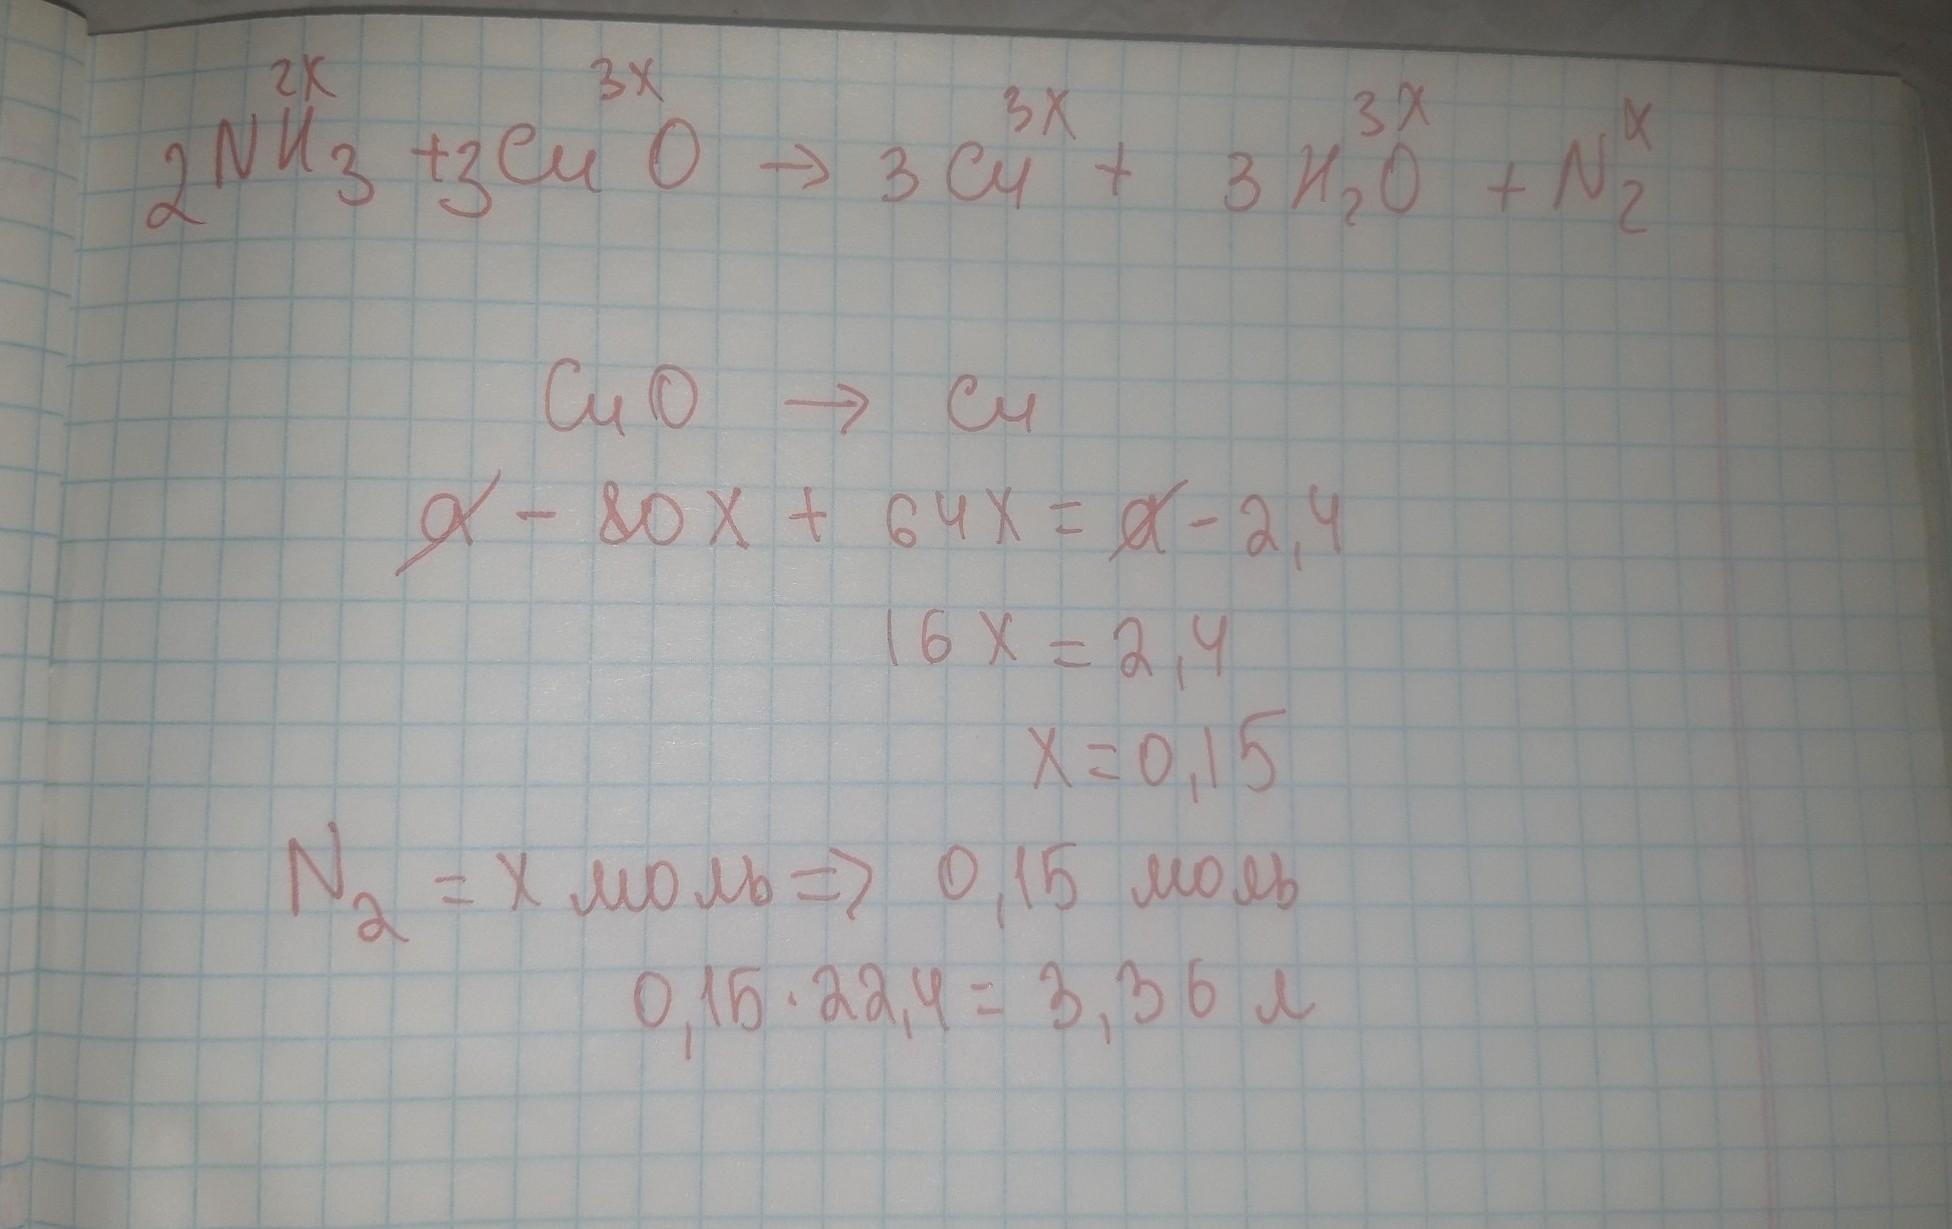 2x 3x 3x 3x x
2NH3 + 3CuO → 3Cu + 3H2O + N2
CuO → Cu
a - 80x + 64x = a - 2,4
16x = 2,4
x = 0,15
N2 = x моль => 0,15 моль
0,15 · 22,4 = 3,36 л